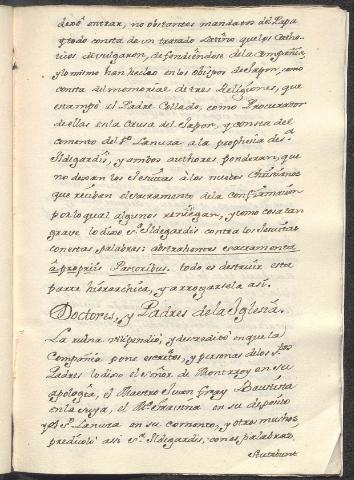 dexò entrar, no obstantes mandatos del Papa
y todo consta de un tratado Latino que los Catho-
licos divulgaron, defendiéndose de la Compañia,
y lo mismo han hecho en los obispos de Japon, como
consta del memorial de tres Religiones, que
estampó el Padre Collado, como Procurador
de ellas en la Causa del Japon, y consta del
comento del P.e Lanuza a la prophesia de S.ta
Ildegardis, y ambos authores ponderan, que
no dexan los Jesuitas a los nuebos Christianos
que reciban el sacramento de la confirmacion
por lo qual algunos reniegan, y como cosa tan
grave lo dixo S.ta Ildegardis contra los Jesuitas
con estas palabras: abstrahentes sacramenta
à propriis Pastoribus. todo es destruir esta
parte hierarchica, y arrogarsela asi.
Doctores, y Padres de la Iglesia.
La ruina, vilipendio, y descredito en que la
Compañia pone escritos, y personas de los S.tos
Padres lo dixo el señor de Montroy en su
apologia, el Maestro Juan Bautista
en la suya, el M.o en su
y el P.e Lanuza en su Comento, y otros muchos,
predixolo assi S.ta Ildegardis, con estas palabras,